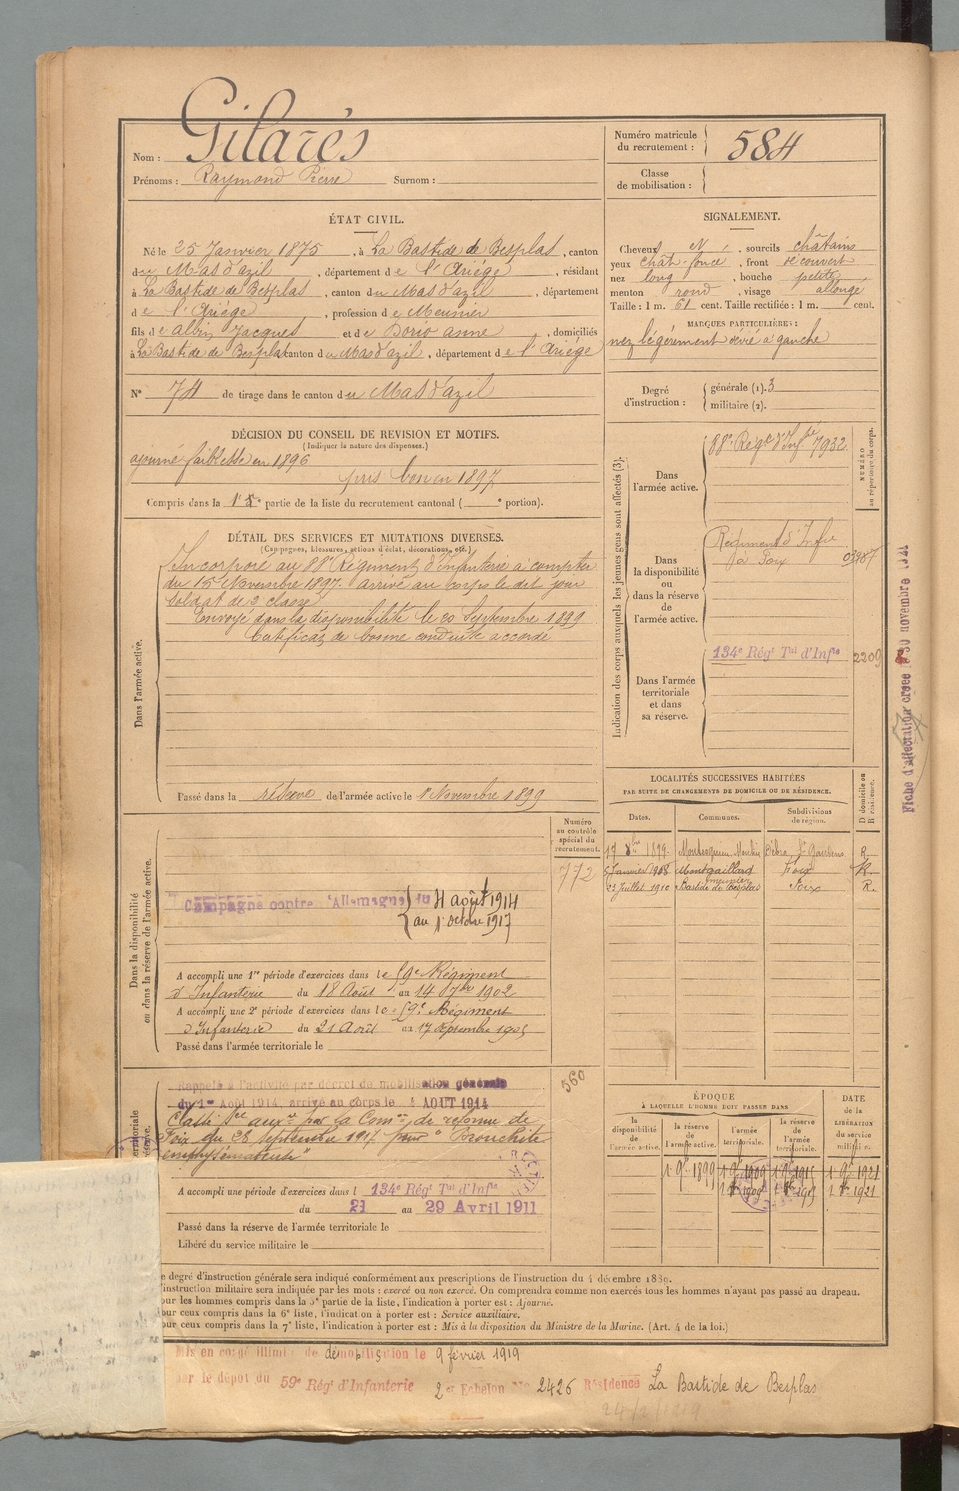 Nom : Gilarés
Prénoms : Raymond Pierre Surnom :
Numéro matricule du recrutement : 584
Classe de mobilisation :
ÉTAT CIVIL.
Né le 25 Janvier 1875, à La Bastide de Besplas, canton
du Mas d'azil, département de l'Ariége, résidant
à La Bastide de Besplas, canton du Mas d'azil, département
de l'Ariége, profession de Meunier
fils de Albin Jacques et de Dorio anne, domiciliés
à La Bastide de Besplas canton du Mas d'azil, département de l'Ariége
N° 74 de tirage dans le canton du Mas d'azil
SIGNALEMENT.
Cheveux N, sourcils châtains
yeux chât-foncé, front découvert
nez long, bouche petite
menton rond, visage allongé
Taille : 1 m. 61 cent. Taille rectifiée : 1 m. cent.
MARQUES PARTICULIÈRES :
nez légèrement dévié à gauche
Degré d'instruction : générale (1). 3
militaire (2).
DÉCISION DU CONSEIL DE REVISION ET MOTIFS.
(Indiquer la nature des dispenses.)
ajourné faiblesse en 1896
pris bon en 1897
Compris dans la 1re partie de la liste du recrutement cantonal ( e portion).
DÉTAIL DES SERVICES ET MUTATIONS DIVERSES.
(Campagnes, blessures, actions d'éclat, décorations, etc.)
Dans l'armée active.
Incorporé au 88e Régiment d'Infanterie à compter
du 15 Novembre 1897. arrivé au corps le dit jour
Soldat de 2 classe
Envoyé dans la disponibilité le 20 Septembre 1899
Certificat de bonne conduite accordé
Passé dans la réserve de l'armée active le 1 Novembre 1899
Indication des corps auxquels les jeunes gens sont affectés (3).
NUMÉRO au répertoire du corps.
Dans l'armée active.
88e Régt d'Infrie 7932
Dans la disponibilité ou dans la réserve de l'armée active.
Régiment d'Infie
à Foix
Dans l'armée territoriale et dans sa réserve.
134e Régt Tal d'Infie 2209
Fiche d'affectation créée le 30 novembre
LOCALITÉS SUCCESSIVES HABITÉES
PAR SUITE DE CHANGEMENTS DE DOMICILE OU DE RÉSIDENCE.
Dates. Communes. Subdivisions de région. D domicile ou R résidence.
17 1899 St Gaudens R.
5 Janvier 1908 Montgaillard Foix R.
23 Juillet 1910 Bastide de Besplas Foix R.
Dans la disponibilité ou dans la réserve de l'armée active.
Numéro au contrôle spécial du recrutement.
772
Campagne contre l'Allemagne du 4 août 1914
au 1 octobre 1917
A accompli une 1re période d'exercices dans le 59e Régiment
d'Infanterie du 18 Août au 14 7bre 1902
A accompli une 2e période d'exercices dans le 59e Régiment
d'Infanterie du 21 Août au 17 septembre 1905
Passé dans l'armée territoriale le
560
Rappelé à l'activité par décret de mobilisation générale
du 1er Août 1914, arrivé au corps le 4 AOUT 1914
Classé sce auxre par la Comon de réforme de
Foix du 28 septembre 1917 pour "Bronchite
emphysémateuse"
A accompli une période d'exercices dans l 134e Régt Tal d'Infie
du 21 au 29 Avril 1911
Passé dans la réserve de l'armée territoriale le
Libéré du service militaire le
ÉPOQUE
À LAQUELLE L'HOMME DOIT PASSER DANS
la disponibilité de l'armée active.
la réserve de l'armée active.
l'armée territoriale.
la réserve de l'armée territoriale.
DATE de la LIBÉRATION du service militaire.
1 9bre 1899 1 9bre 1909 1 9bre 1915 1 9bre 1921
1 1909 1915 1 1921
e degré d'instruction générale sera indiqué conformément aux prescriptions de l'instruction du 4 décembre 1889.
'instruction militaire sera indiquée par les mots : exercé ou non exercé. On comprendra comme non exercés tous les hommes n'ayant pas passé au drapeau.
our les hommes compris dans la 3e partie de la liste, l'indication à porter est : Ajourné.
our ceux compris dans la 6e liste, l'indication à porter est : Service auxiliaire.
our ceux compris dans la 7e liste, l'indication à porter est : Mis à la disposition du Ministre de la Marine. (Art. 4 de la loi.)
Mis en congé illimité de démobilisation le 9 février 1919
par le dépôt du 59e Régt d'Infanterie 2e Echelon No 2426 Résidence La Bastide de Besplas